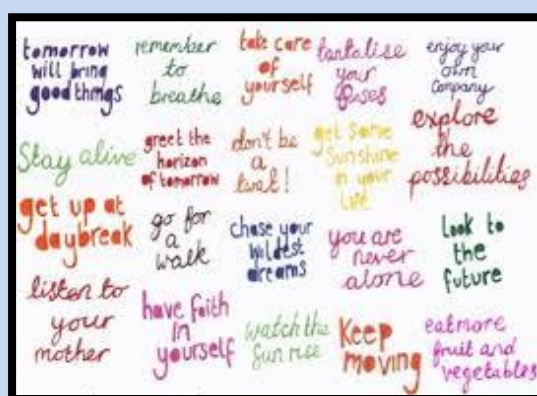 tomorrow
will bring
good things
remember
to
breathe
take care
of
yourself
tantalise
your
enjoy your
own
company
Stay alive
greet the
horizon
of tomorrow
don't be
a
twat!
get some
Sunshine
in your
Life
explore
the
possibilities
get up at
daybreak
go for
a
walk
chase your
wildest
dreams
you are
never
alone
look to
the
future
listen to
your
mother
have faith
in
yourself
watch the
Sun rise
Keep
moving
eat more
fruit and
vegetables